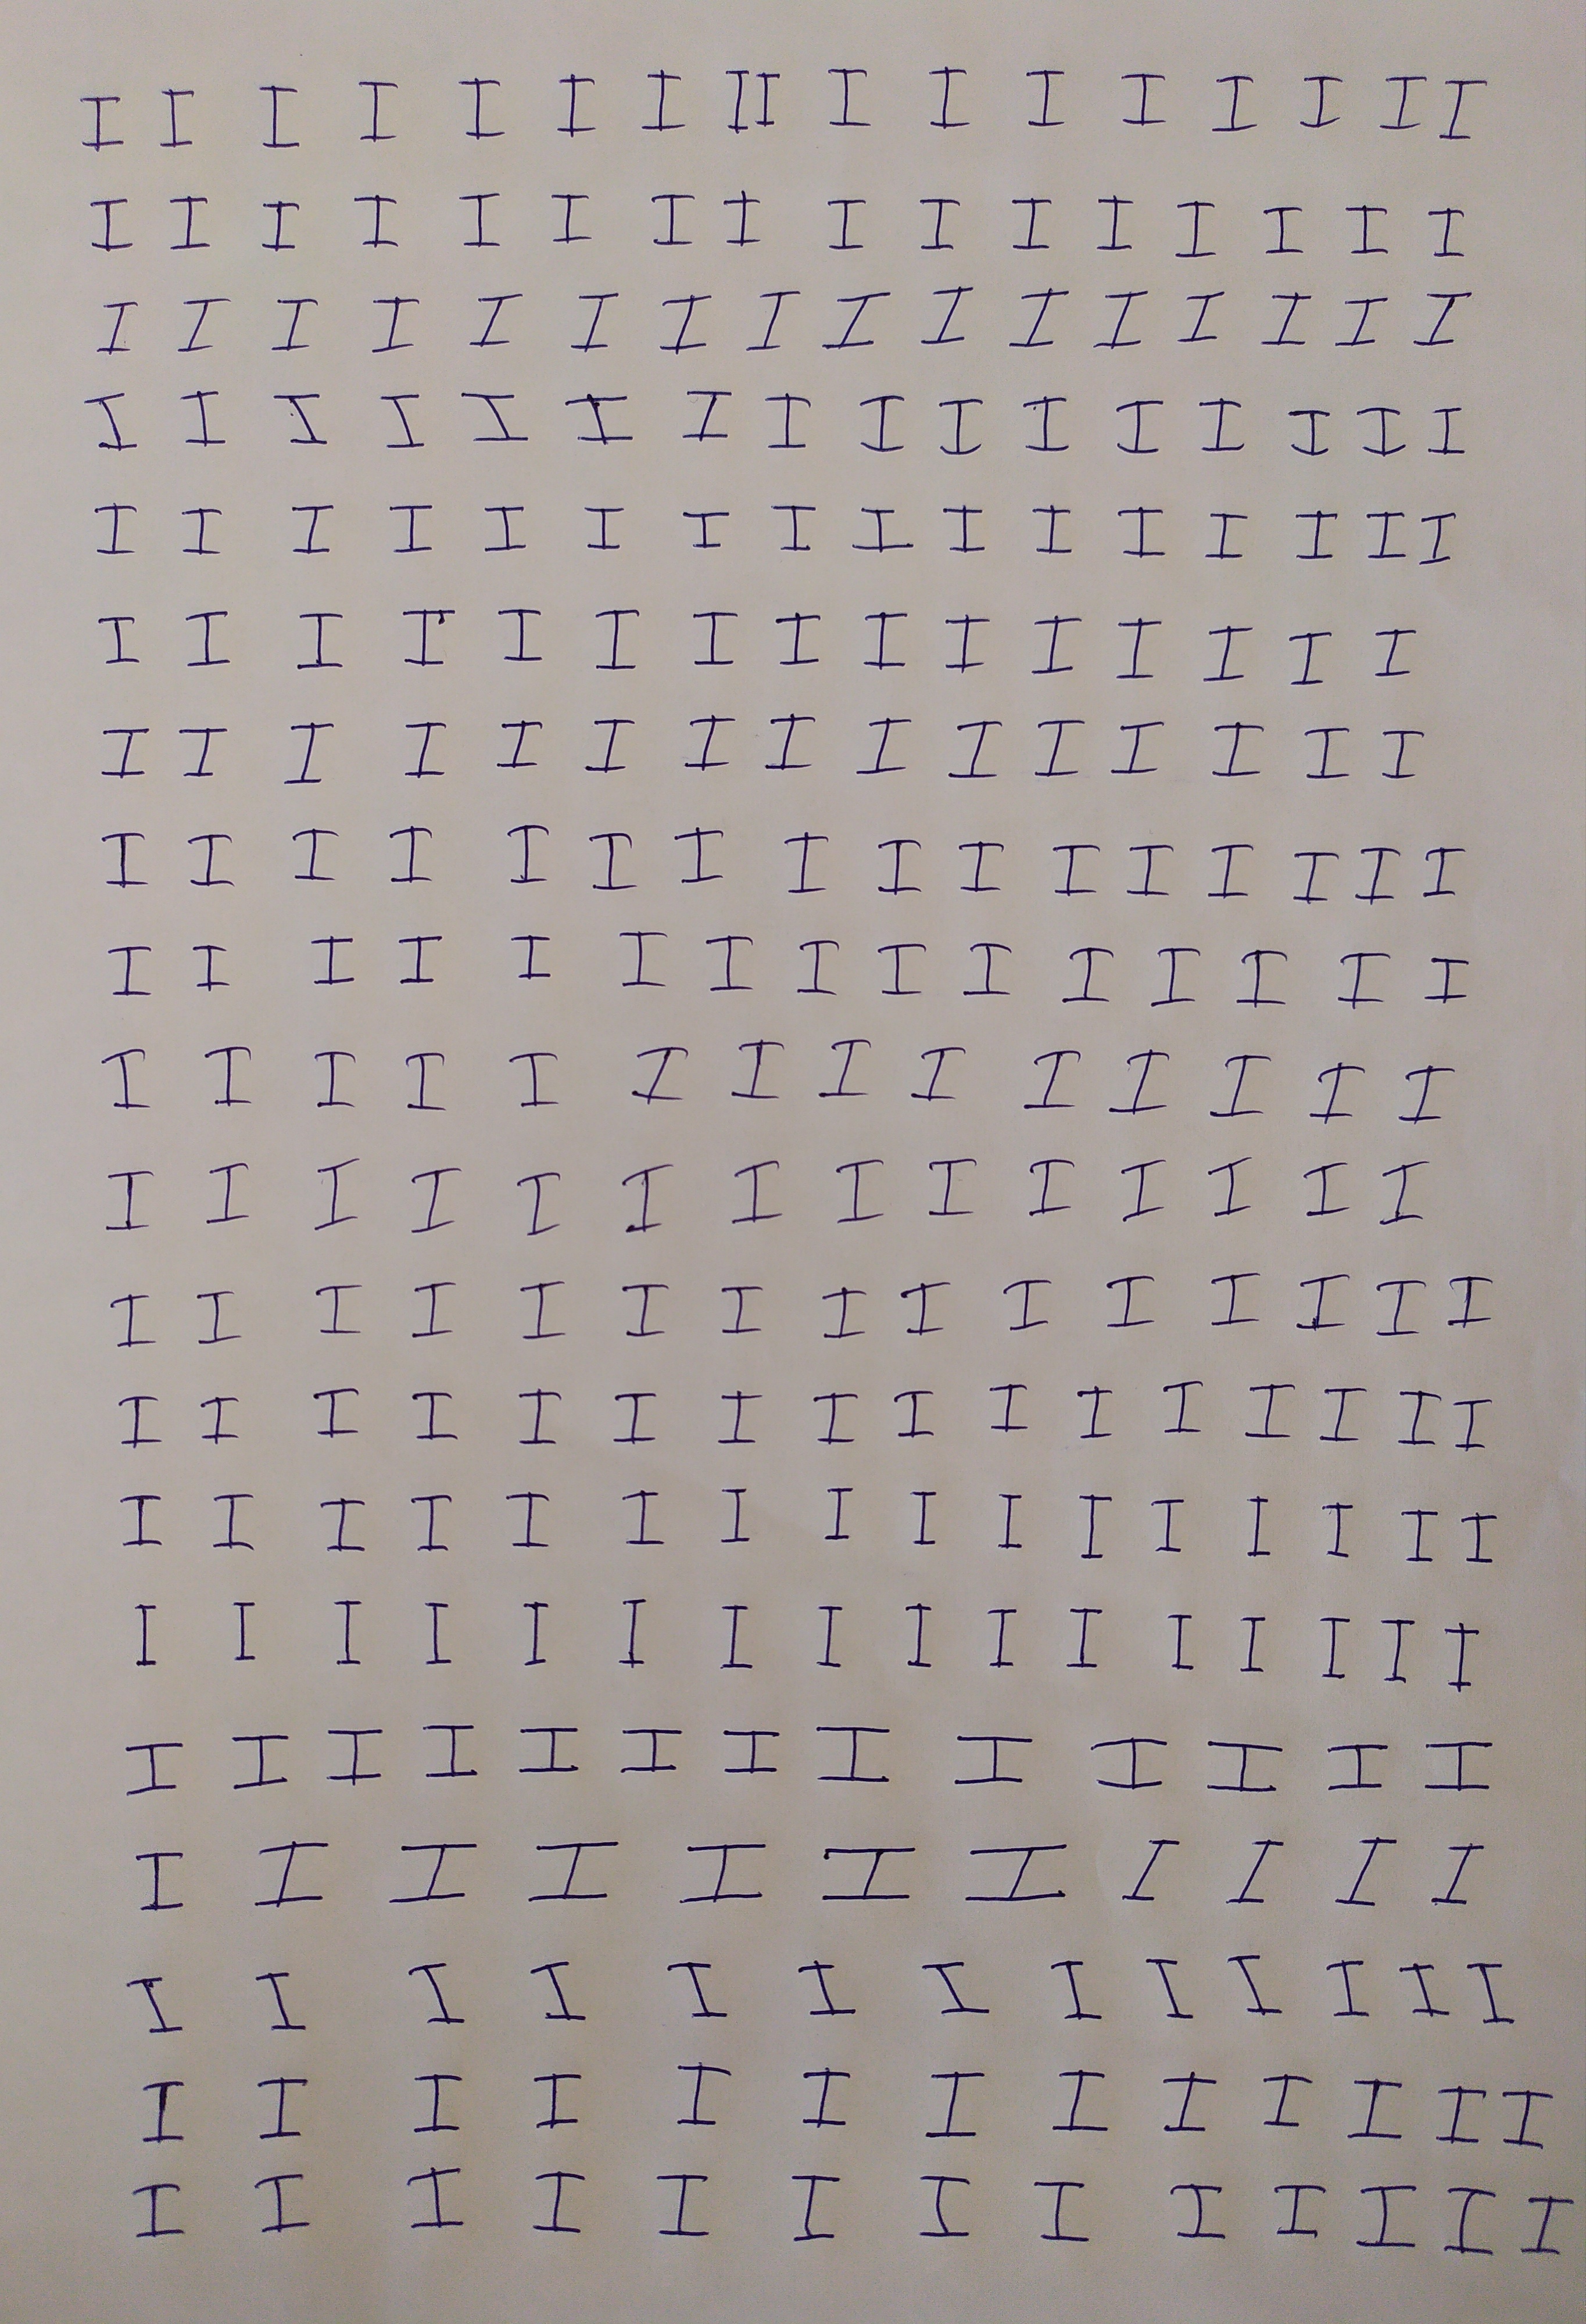 I I I I I I I I I I I I I I I I I
I I I I I I I I I I I I I I I I
I I I I I I I I I I I I I I I I
I I I I I I I I I I I I I I I I
I I I I I I I I I I I I I I I I
I I I I I I I I I I I I I I I
I I I I I I I I I I I I I I I
I I I I I I I I I I I I I I I I
I I I I I I I I I I I I I I I
I I I I I I I I I I I I I I
I I I I I I I I I I I I I I
I I I I I I I I I I I I I I I
I I I I I I I I I I I I I I I I
I I I I I I I I I I I I I I I I
I I I I I I I I I I I I I I I I
I I I I I I I I I I I I I
I I I I I I I I I I I
I I I I I I I I I I I I I
I I I I I I I I I I I I I
I I I I I I I I I I I I I